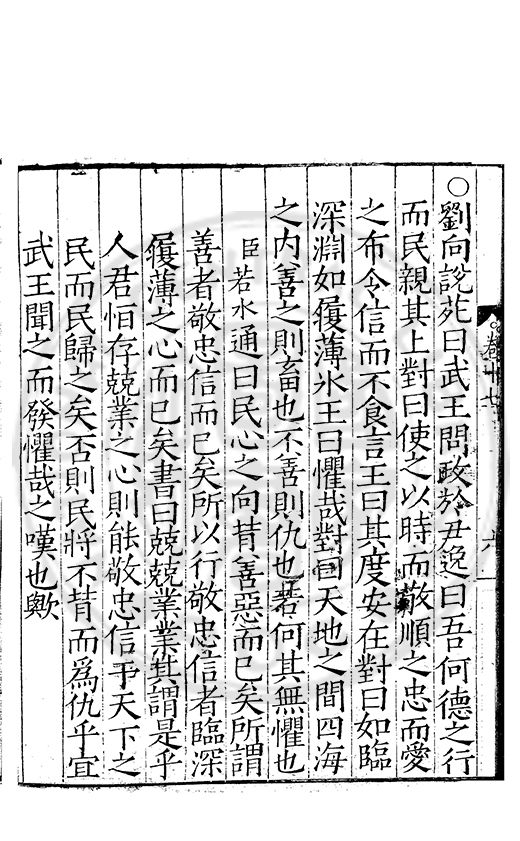 ○劉向說苑曰武王問政於尹逸曰吾何德之行
而民親其上對曰使之以時而敬順之忠而愛
之布令信而不食言王曰其度安在對曰如臨
深淵如履薄氷王曰懼哉對曰天地之間四海
之内善之則畜也不善則仇也若何其無懼也
臣若水通曰民心之向背善惡而已矣所謂
善者敬忠信而已矣所以行敬忠信者臨深
履薄之心而已矣書曰兢兢業業其謂是乎
人君恒存兢業之心則能敬忠信乎天下之
民而民歸之矣否則民將不背而爲仇乎宜
武王聞之而發懼哉之嘆也歟
卷十七
六